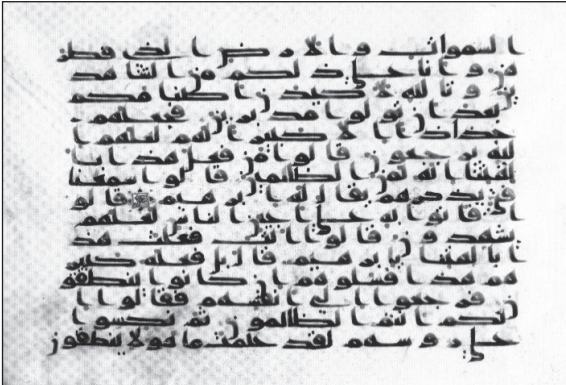 السموات والارض الذى فطر
هن وانا على ذلكم من الشهد
ين وتالله لاكيدن اصنمكم
بعد ان تولوا مدبرين فجعلهم
جذاذا الا كبيرا لهم لعلهم ا
ليه يرجعون قالوا من فعل هذا با
لهتنا انه لمن الظلمين قالوا سمعنا
فتى يذكرهم يقال له ابرهيم قالو
ا فاتوا به على اعين الناس لعلهم
يشهدون قالوا انت فعلت هذ
ا بالهتنا يابرهيم قال بل فعله كبير
هم هذا فسلوهم ان كانوا ينطقو
ن فرجعوا الى انفسهم فقالوا ا
نكم انتم الظالمون ثم نكسوا
على روسهم لقد علمت ما هولا ينطقون